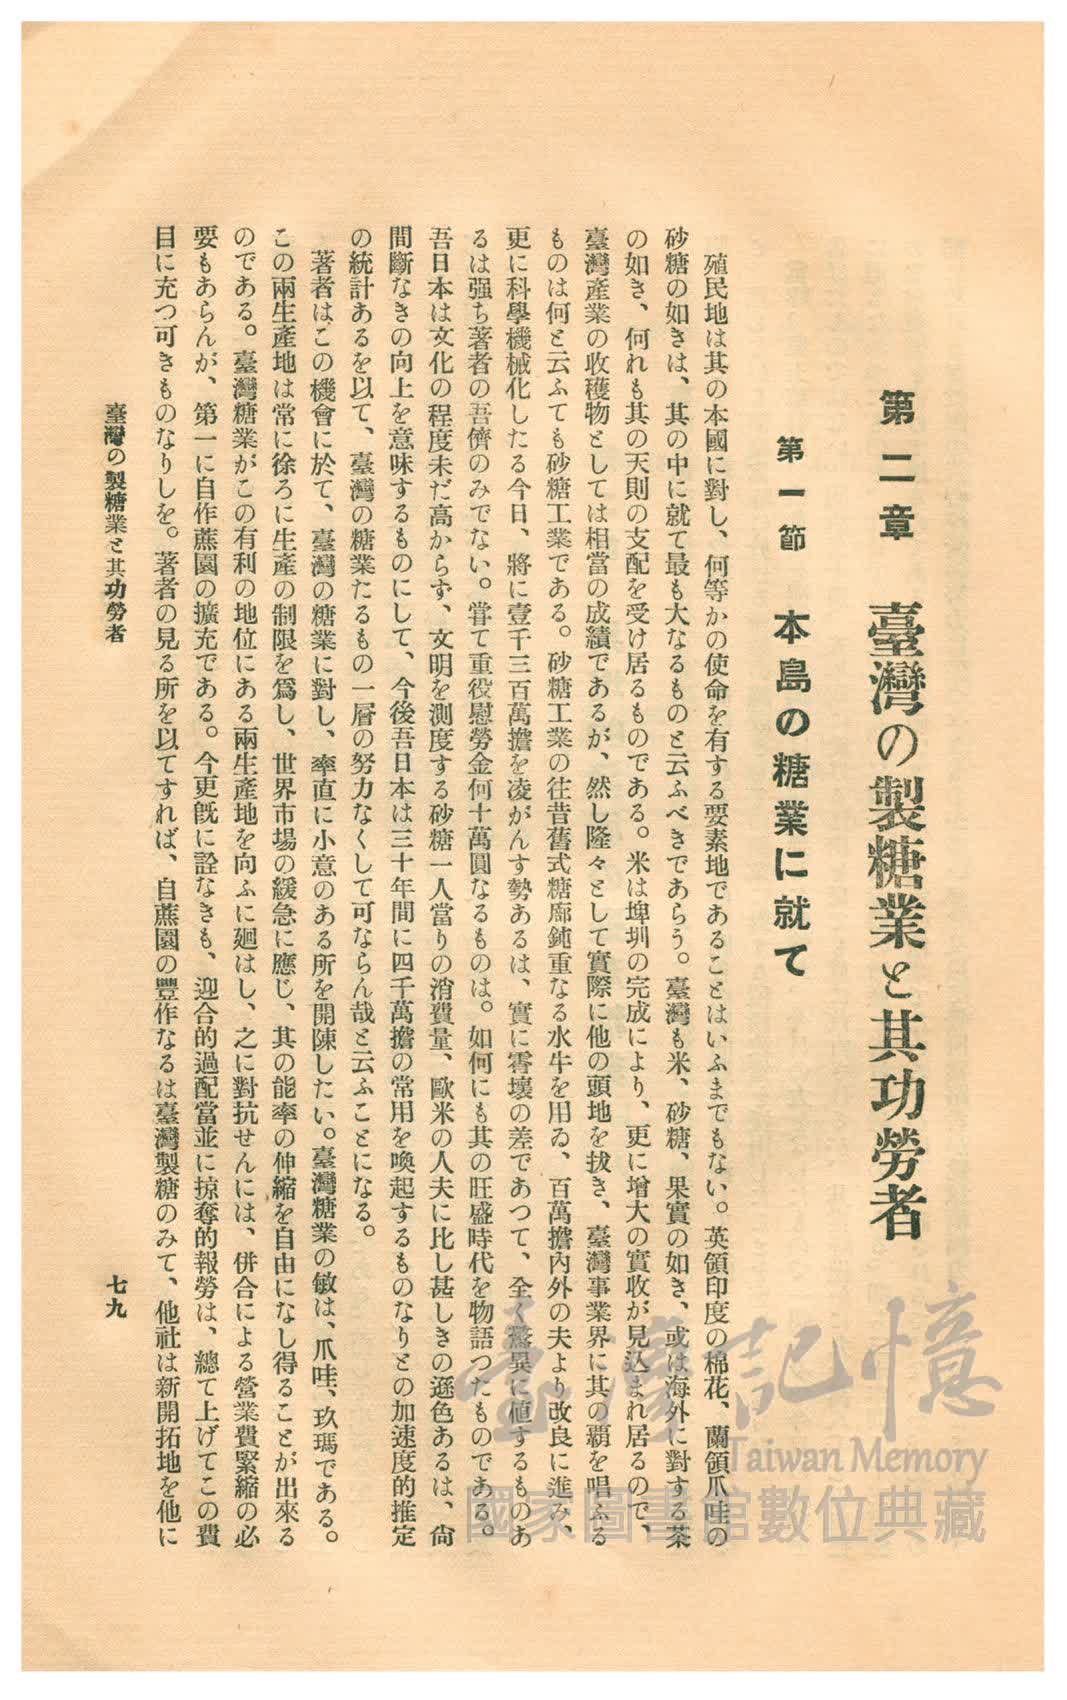 第二章　臺灣の製糖業と其功勞者
第一節　本島の糖業に就て
殖民地は其の本國に對し、何等かの使命を有する要素地であることはいふまでもない。英領印度の棉花、蘭領爪哇の
砂糖の如きは、其の中に就て最も大なるものと云ふべきであらう。臺灣も米、砂糖、果實の如き、或は海外に對する茶
の如き、何れも其の天則の支配を受け居るものである。米は埤圳の完成により、更に增大の實收が見込まれ居るので、
臺灣產業の收穫物としては相當の成績であるが、然し隆々として實際に他の頭地を拔き、臺灣事業界に其の覇を唱ふる
ものは何と云ふても砂糖工業である。砂糖工業の往昔舊式糖廍鈍重なる水牛を用ゐ、百萬擔內外の夫より改良に進み、
更に科學機械化したる今日、將に壹千三百萬擔を凌がんす勢あるは、實に霄壤の差であつて、全く驚異に値するものあ
るは强ち著者の吾儕のみでない。甞て重役慰勞金何十萬圓なるものは。如何にも其の旺盛時代を物語つたものである。
吾日本は文化の程度未だ高からず、文明を測度する砂糖一人當りの消費量、歐米の人夫に比し甚しきの遜色あるは、尙
間斷なきの向上を意味するものにして、今後吾日本は三十年間に四千萬擔の常用を喚起するものなりとの加速度的推定
の統計あるを以て、臺灣の糖業たるもの一層の努力なくして可ならん哉と云ふことになる。
著者はこの機會に於て、臺灣の糖業に對し、率直に小意のある所を開陳したい。臺灣糖業の敏は、爪哇、玖瑪である。
この兩生產地は常に徐ろに生產の制限を爲し、世界市場の緩急に應じ、其の能率の伸縮を自由になし得ることが出來る
のである。臺灣糖業がこの有利の地位にある兩生產地を向ふに廻はし、之に對抗せんには、併合による營業費緊縮の必
要もあらんが、第一に自作蔗園の擴充である。今更旣に詮なきも、迎合的過配當並に掠奪的報勞は、總て上げてこの費
目に充つ可きものなりしを。著者の見る所を以てすれば、自蔗園の豐作なるは臺灣製糖のみて、他社は新開拓地を他に
臺灣の製糖業と其功勞者
七九
臺灣記憶
Taiwan Memory
國家圖書館數位典藏